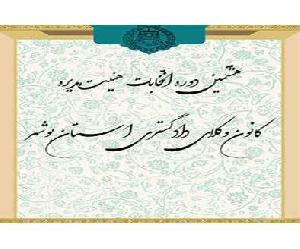 هشتمین دوره انتخابات هیئت مدیره
کانون وکلای دادگستری استان بوشهر